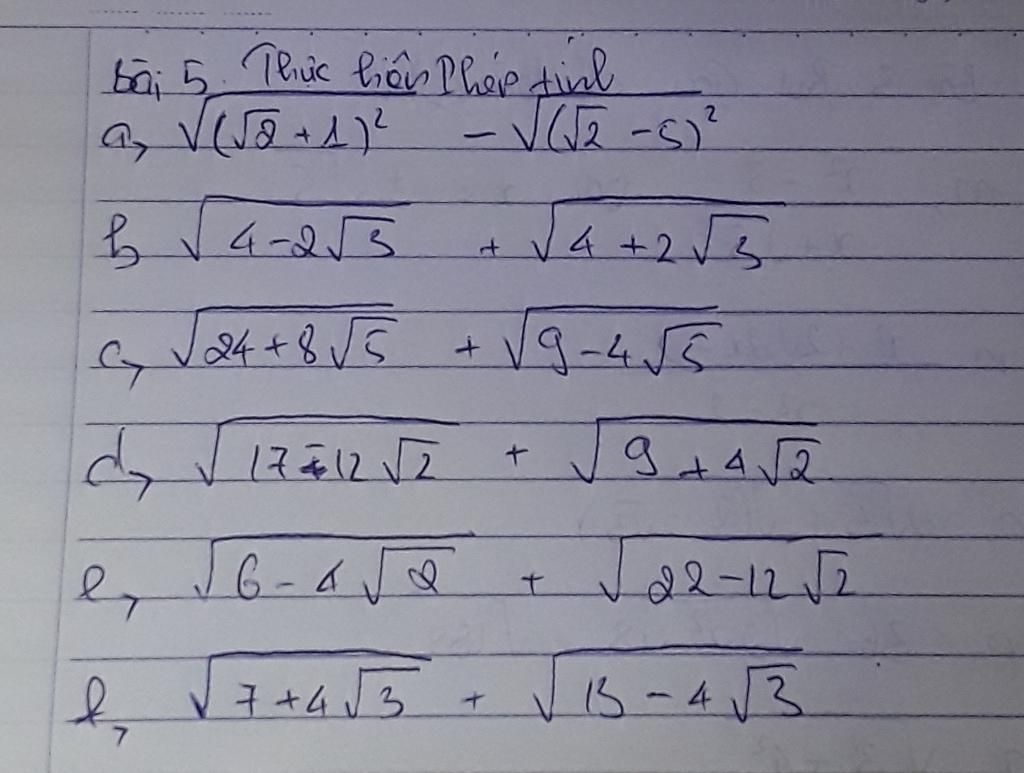 Bài 5. Thực hiện Phép tính
a, √(√2 + 1)² - √(√2 - 5)²
b, √4 - 2√3 + √4 + 2√3
c, √24 + 8√5 + √9 - 4√5
d, √17 - 12√2 + √9 + 4√2
e, √6 - 4√2 + √22 - 12√2
f, √7 + 4√3 + √13 - 4√3